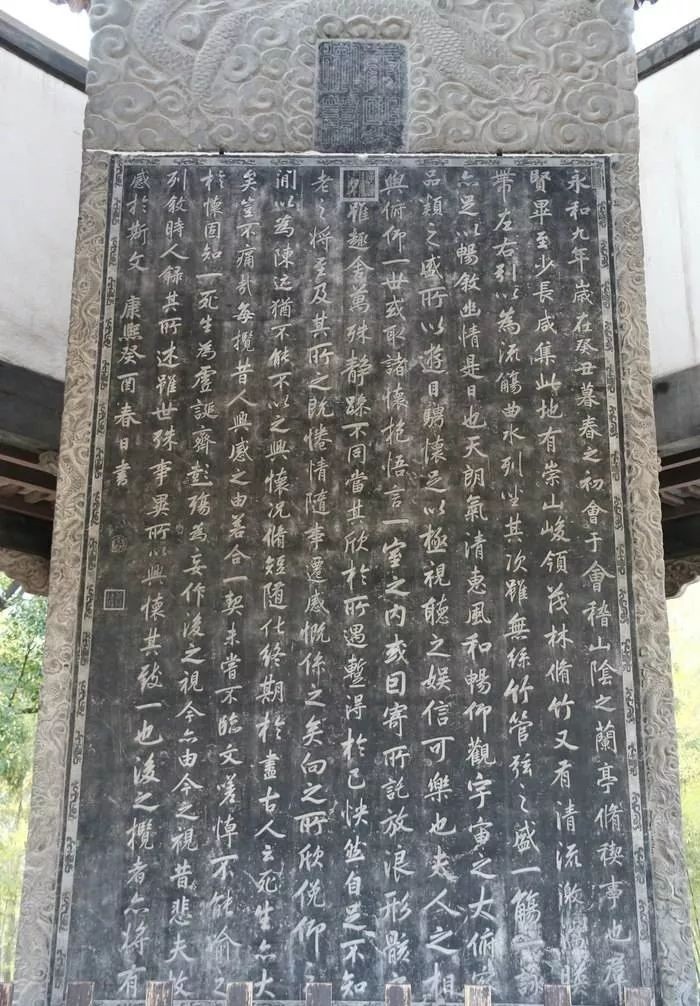 永和九年歲在癸丑暮春之初會于會稽山陰之蘭亭脩稧事也羣
賢畢至少長咸集此地有崇山峻領茂林脩竹又有清流激湍映
帶左右引以為流觴曲水列坐其次雖無絲竹管弦之盛一觴一詠
亦足以暢敘幽情是日也天朗氣清惠風和暢仰觀宇宙之大俯察
品類之盛所以遊目騁懷足以極視聽之娛信可樂也夫人之相
與俯仰一世或取諸懷抱悟言一室之內或因寄所託放浪形骸之
外雖趣舍萬殊靜躁不同當其欣於所遇蹔得於己快然自足不知
老之將至及其所之既惓情隨事遷感慨係之矣向之所欣俛仰之
間以為陳迹猶不能不以之興懷況脩短隨化終期於盡古人云死生亦大
矣豈不痛哉每攬昔人興感之由若合一契未嘗不臨文嗟悼不能喻之
於懷固知一死生為虛誕齊彭殤為妄作後之視今亦由今之視昔悲夫故
列敘時人錄其所述雖世殊事異所以興懷其致一也後之攬者亦將有
感於斯文 康熙癸酉春日書